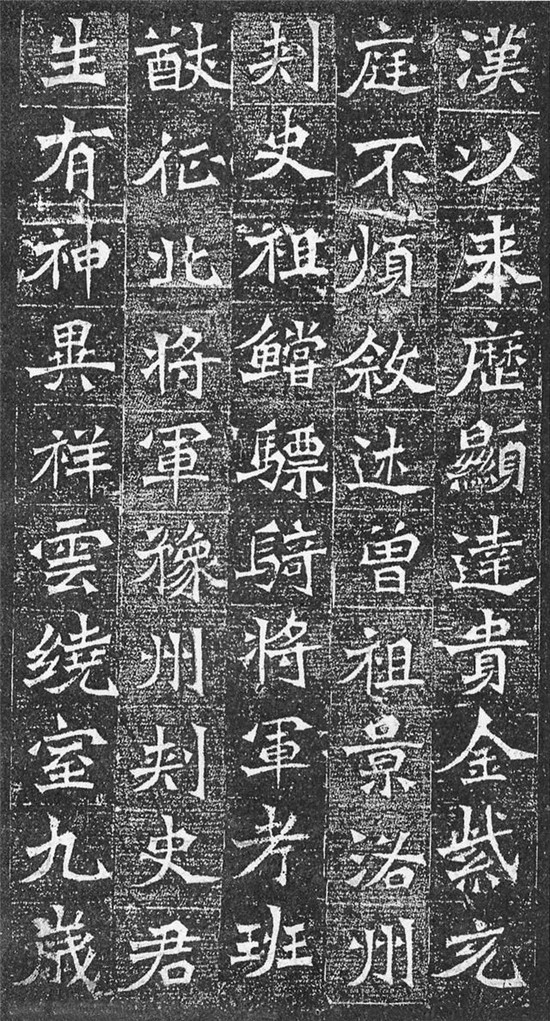 漢以来歷顯達貴金紫充
庭不煩敘述曾祖景洛州
刾史祖鱨驃騎將軍考班
猷征北将軍豫州刾史君
生有神異祥雲繞室九歲